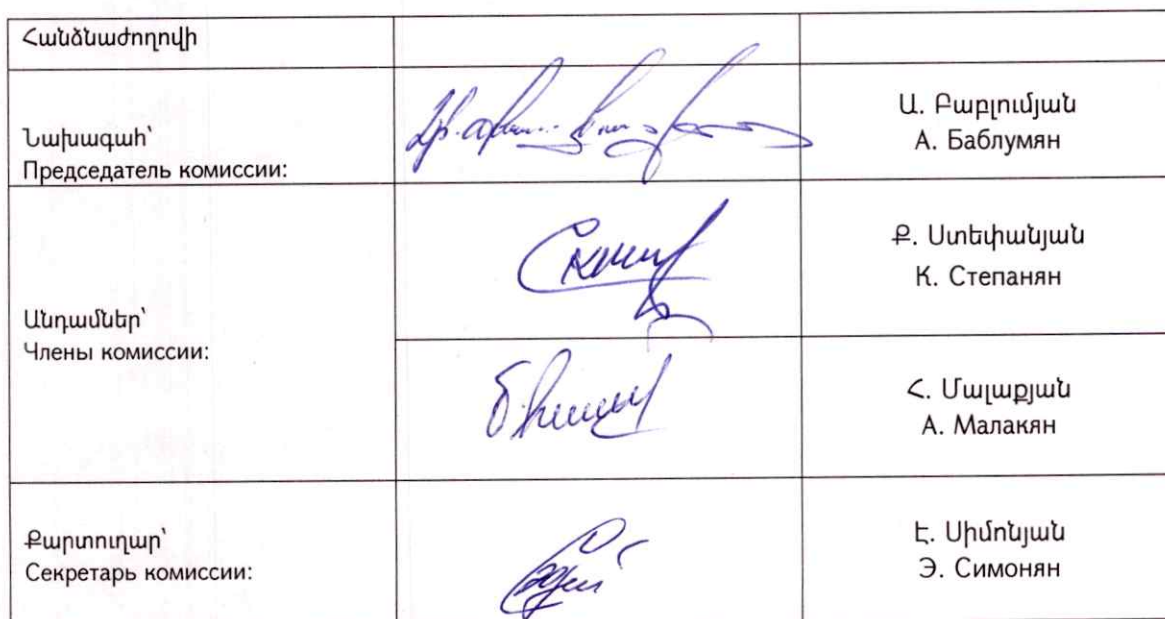 Հանձնաժողովի
Նախագահ՝
Председатель комиссии:
Ա. Բաբլումյան
А. Баблумян
Անդամներ՝
Члены комиссии:
Ք. Ստեփանյան
К. Степанян
Հ. Մալաքյան
А. Малакян
Քարտուղար՝
Секретарь комиссии:
Է. Սիմոնյան
Э. Симонян